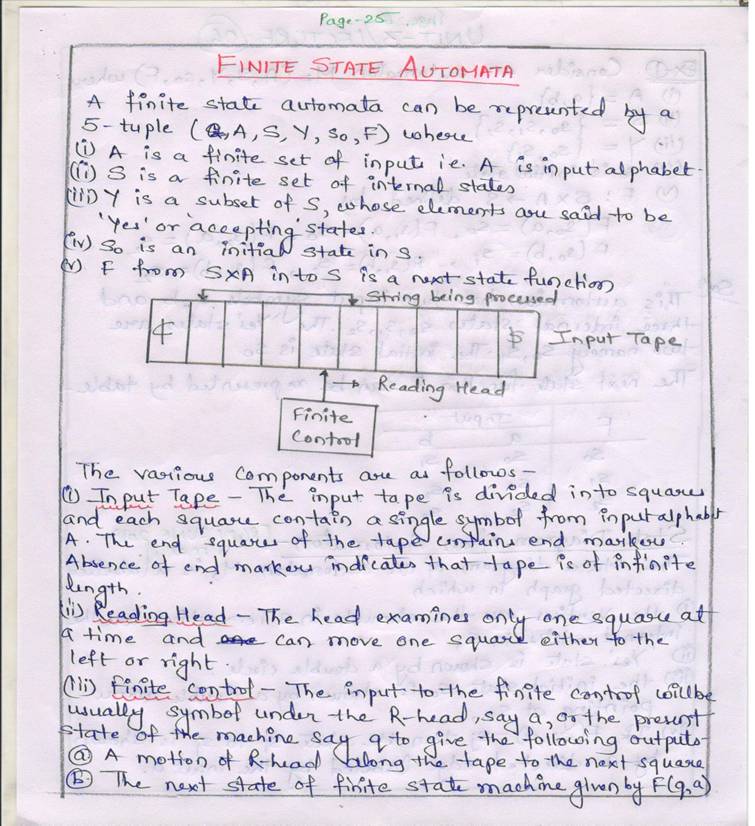 Page-25
FINITE STATE AUTOMATA
A finite state automata can be represented by a
5-tuple (A, S, Y, so, F) where
(i) A is a finite set of inputs i.e. A is input alphabet.
(ii) S is a finite set of internal states
(iii) Y is a subset of S, whose elements are said to be
'Yes' or 'accepting' states.
(iv) So is an initial state in S.
(v) F from S×A in to S is a next state function
String being processed
¢ $ Input Tape
Reading Head
Finite
Control
The various components are as follows-
(i) Input Tape - The input tape is divided into squares
and each square contain a single symbol from input alphabet
A. The end squares of the tape contains end markers.
Absence of end markers indicates that tape is of infinite
length.
(ii) Reading Head - The head examines only one square at
a time and can move one square either to the
left or right.
(iii) Finite control - The input to the finite control will be
usually symbol under the R-head, say a, or the present
state of the machine say q to give the following outputs-
(a) A motion of R-head along the tape to the next square
(b) The next state of finite state machine given by F(q,a)